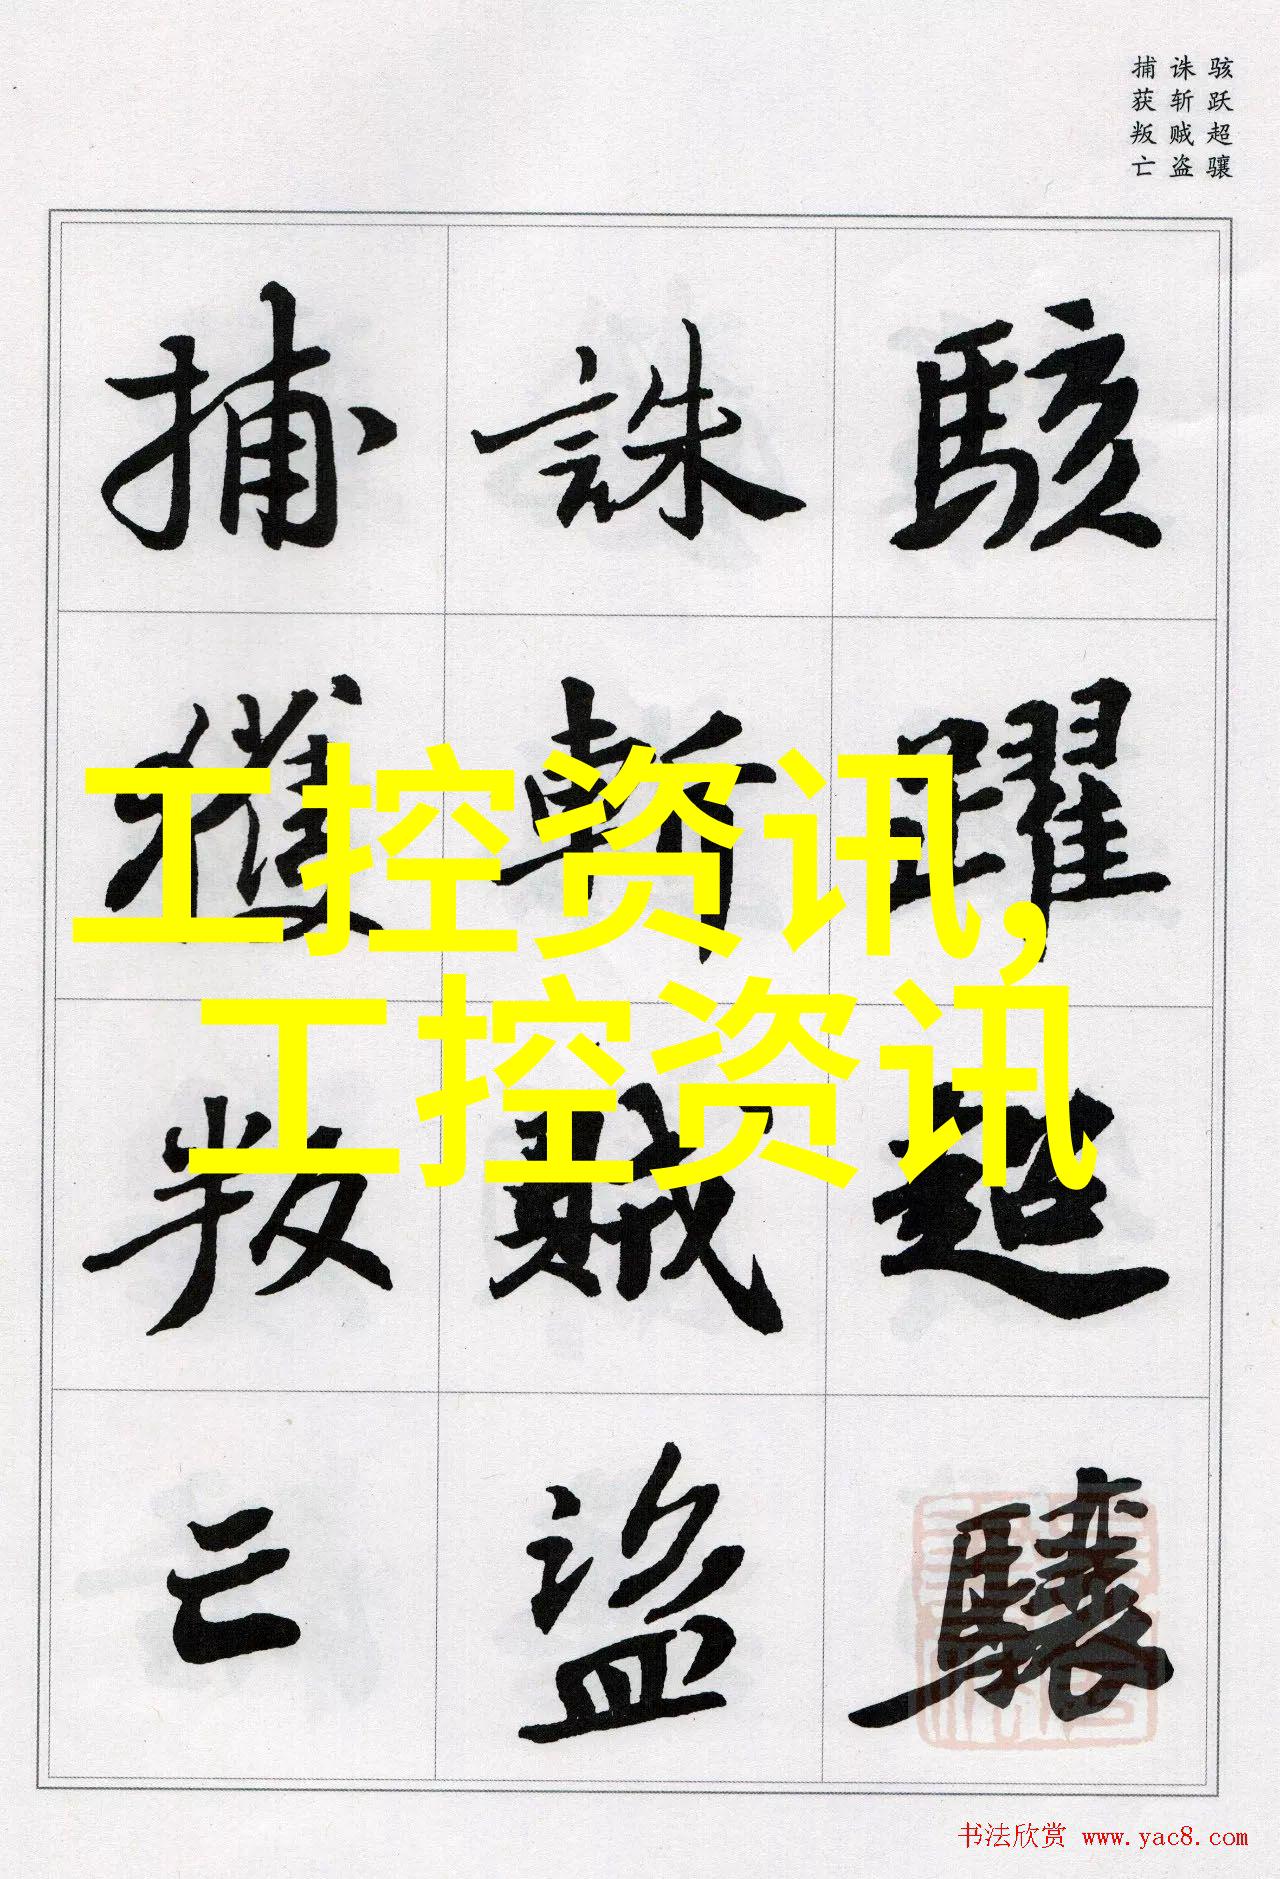 骇跃超骧
诛斩贼盗
捕获叛亡
駭躍超驤
誅斬賊盜
捕獲叛亡
工控资讯,
工控资讯
书法欣赏 www.yac8.com